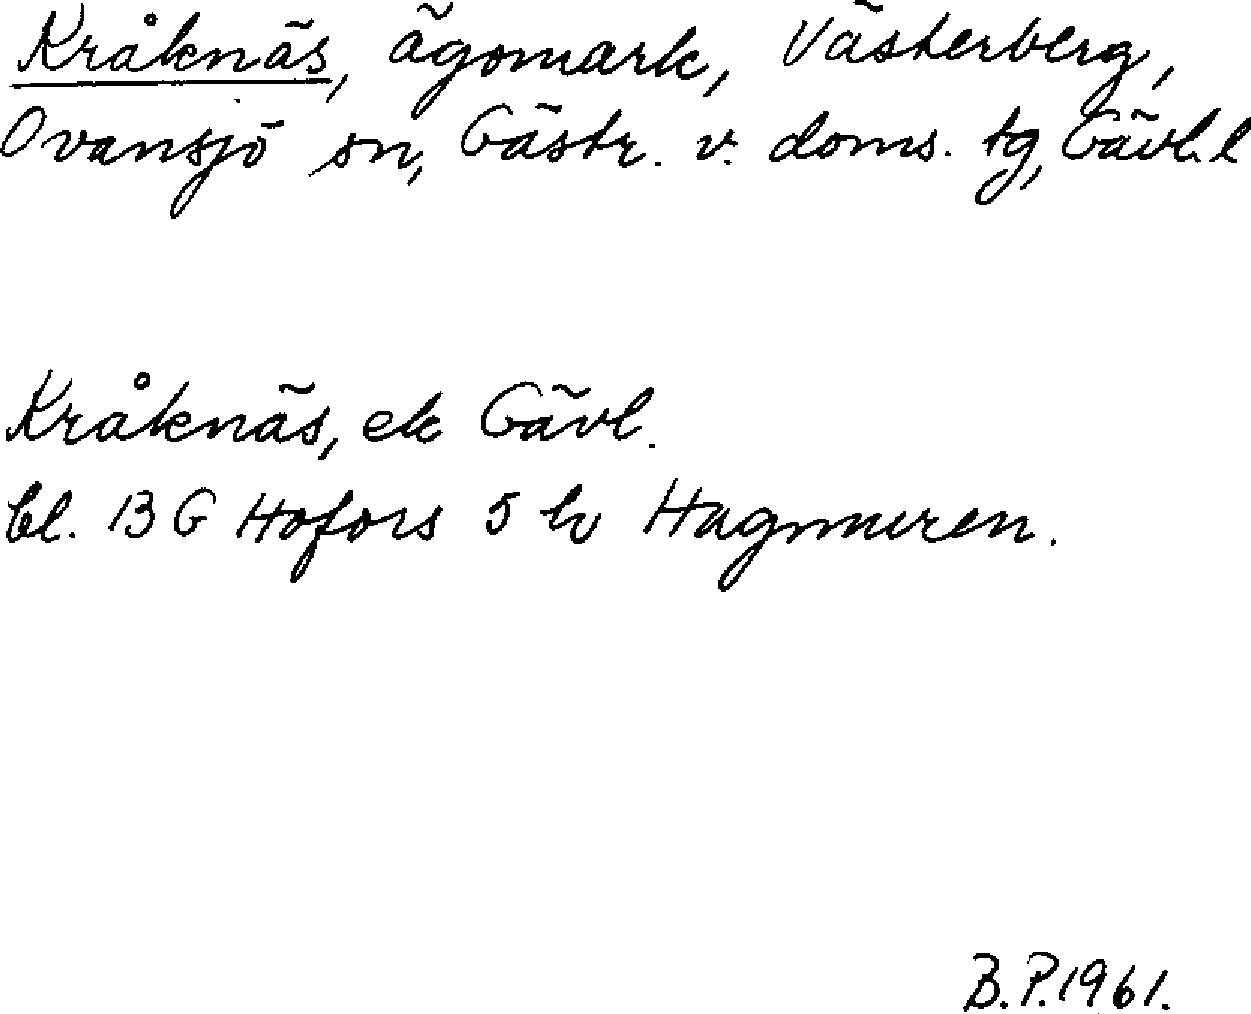 Kråknäs, ägomark, Västerberg,
Ovansjö sn, Gästr. v. doms. tg, Gävl. l
Kråknäs, ek Gävl.
bl. 13 G Hofors 5 h Hagmuren.
B.P. 1961.